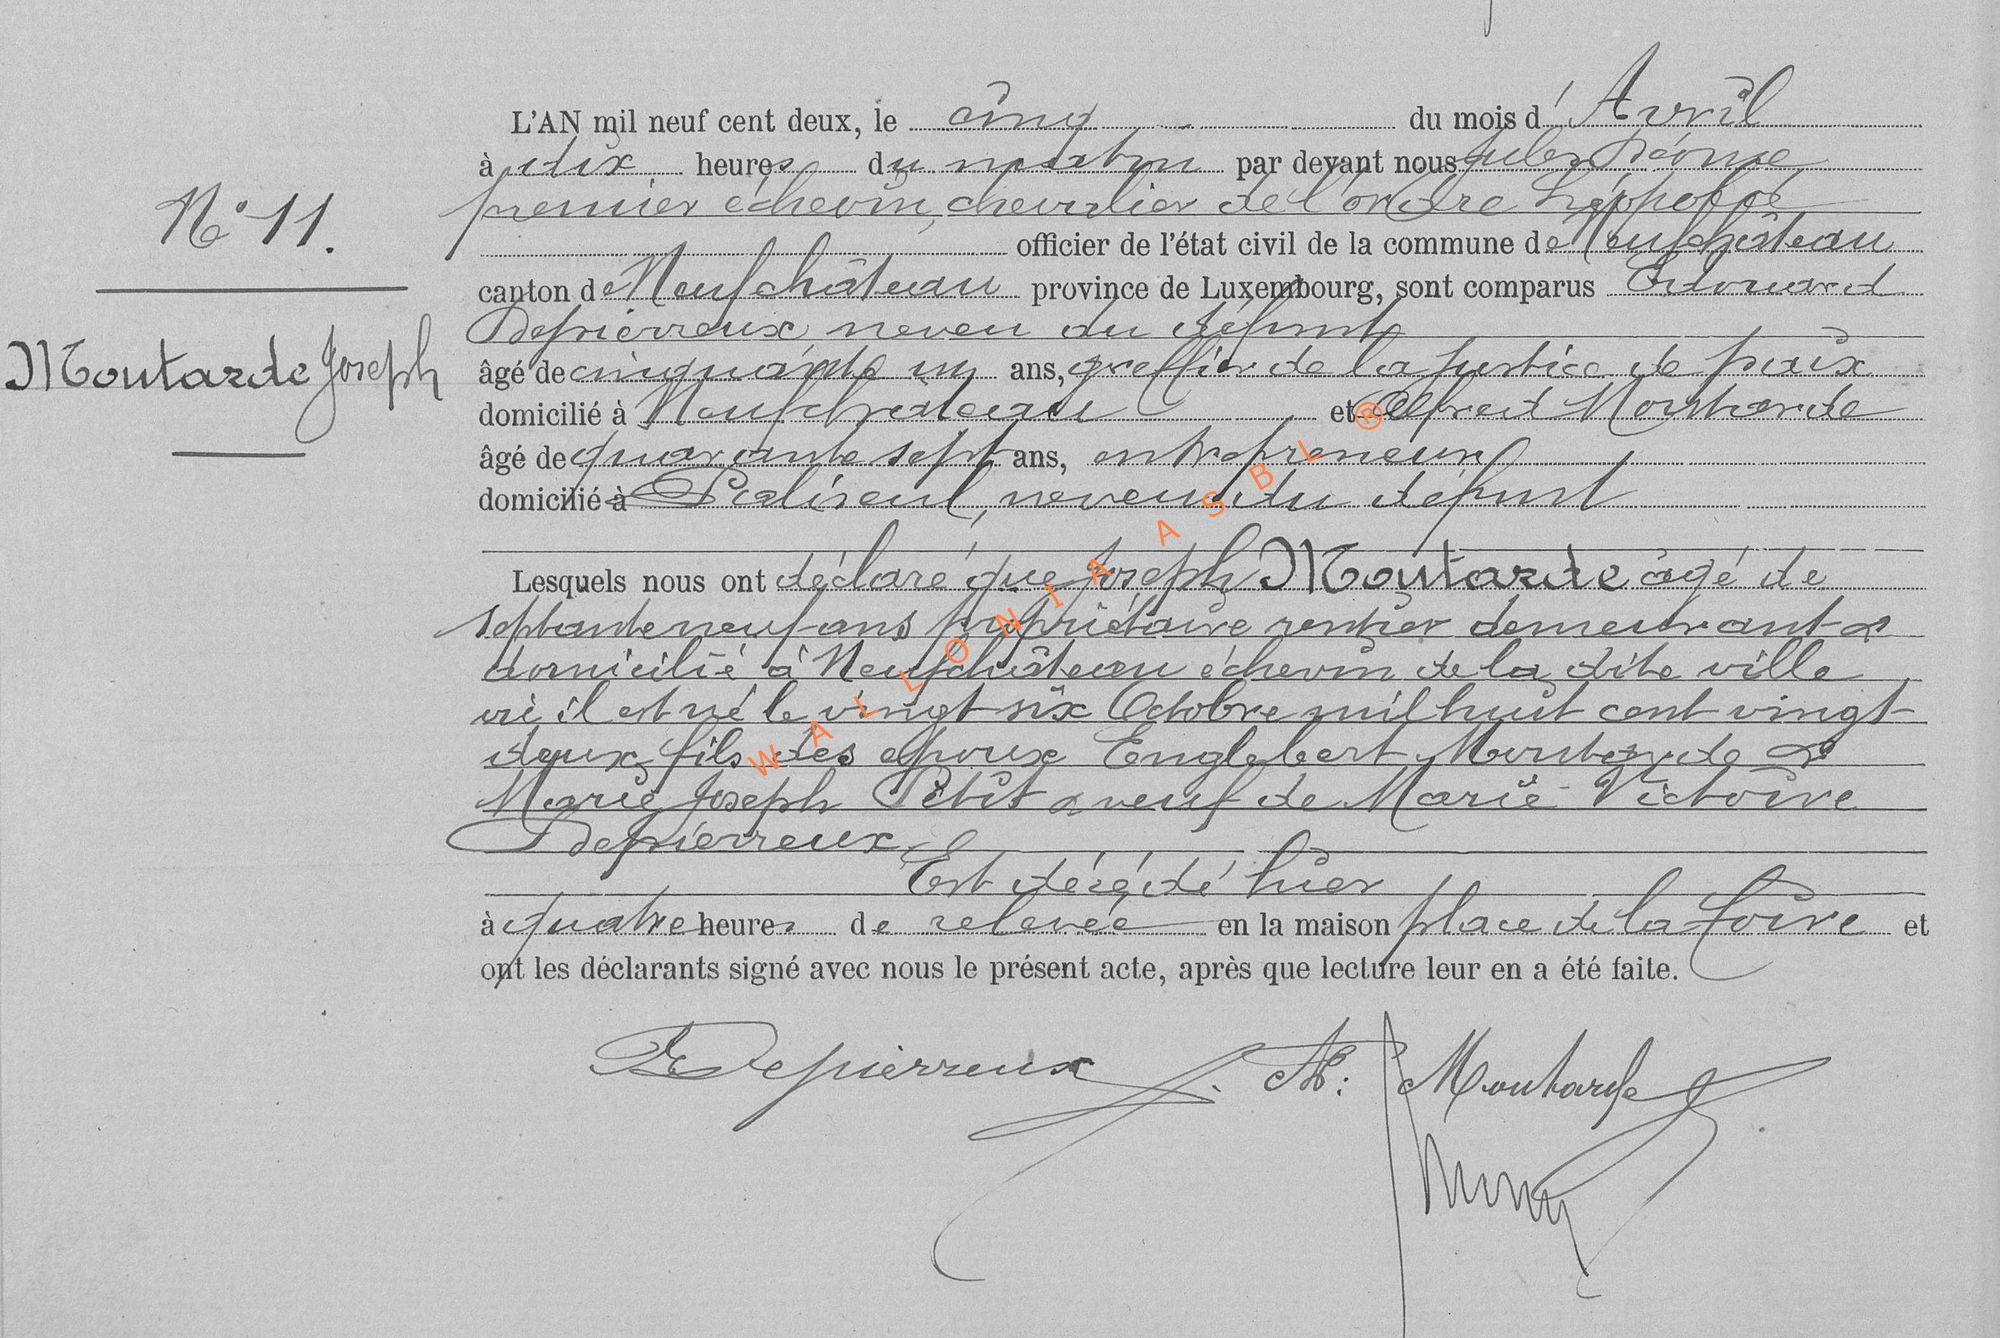 L'AN mil neuf cent deux, le cinq du mois d'Avril
à dix heures du matin par devant nous Jules
premier échevin, chevalier de l'ordre Léopold
officier de l'état civil de la commune de Neufchâteau
canton de Neufchâteau province de Luxembourg, sont comparus Edouard
Depierreux neveu du défunt
âgé de cinquante un ans, greffier de la justice de paix
domicilié à Neufchâteau et Alfred Moutarde
âgé de quarante sept ans, entrepreneur
domicilié à Paliseul, neveu du défunt
Lesquels nous ont déclaré que Joseph Moutarde âgé de
septante neuf ans propriétaire rentier demeurant &
domicilié à Neufchâteau échevin de la dite ville
où il est né le vingt six Octobre mil huit cent vingt
deux, fils des époux Englebert Moutarde &
Marie Joseph Petit & veuf de Marie Victoire
Depierreux
Est décédé hier
à quatre heures de relevée en la maison place de la Foire et
ont les déclarants signé avec nous le présent acte, après que lecture leur en a été faite.
N° 11.
Moutarde Joseph
EDepierreux Af: Moutarde
WALLONIA ASBL ®